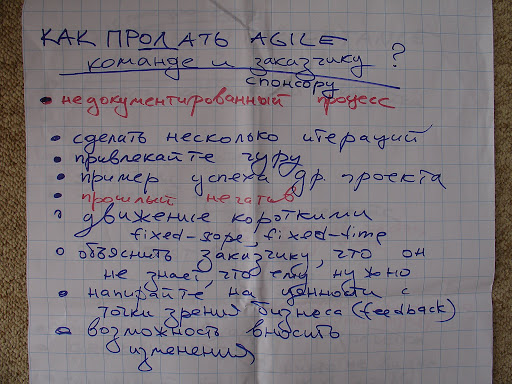 КАК ПРОДАТЬ AGILE
команде и заказчику ?
спонсору
• недокументированный процесс
• сделать несколько итераций
• привлекайте гуру
• пример успеха др. проекта
• прошлый негатив
• движение короткими
fixed-scope, fixed-time
• объяснить заказчику, что он
не знает, что ему нужно
• напирайте на ценности с
точки зрения бизнеса (feedback)
• возможность вносить
изменения